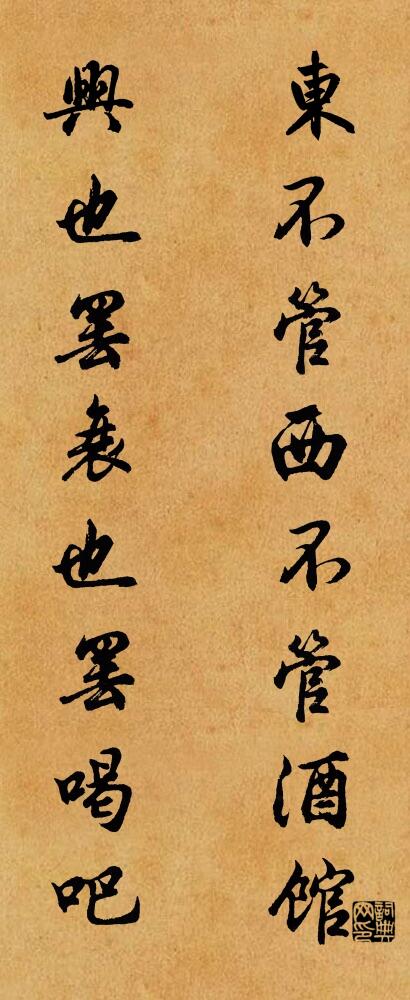 東不管西不管酒館
興也罷衰也罷喝吧
詞典網印